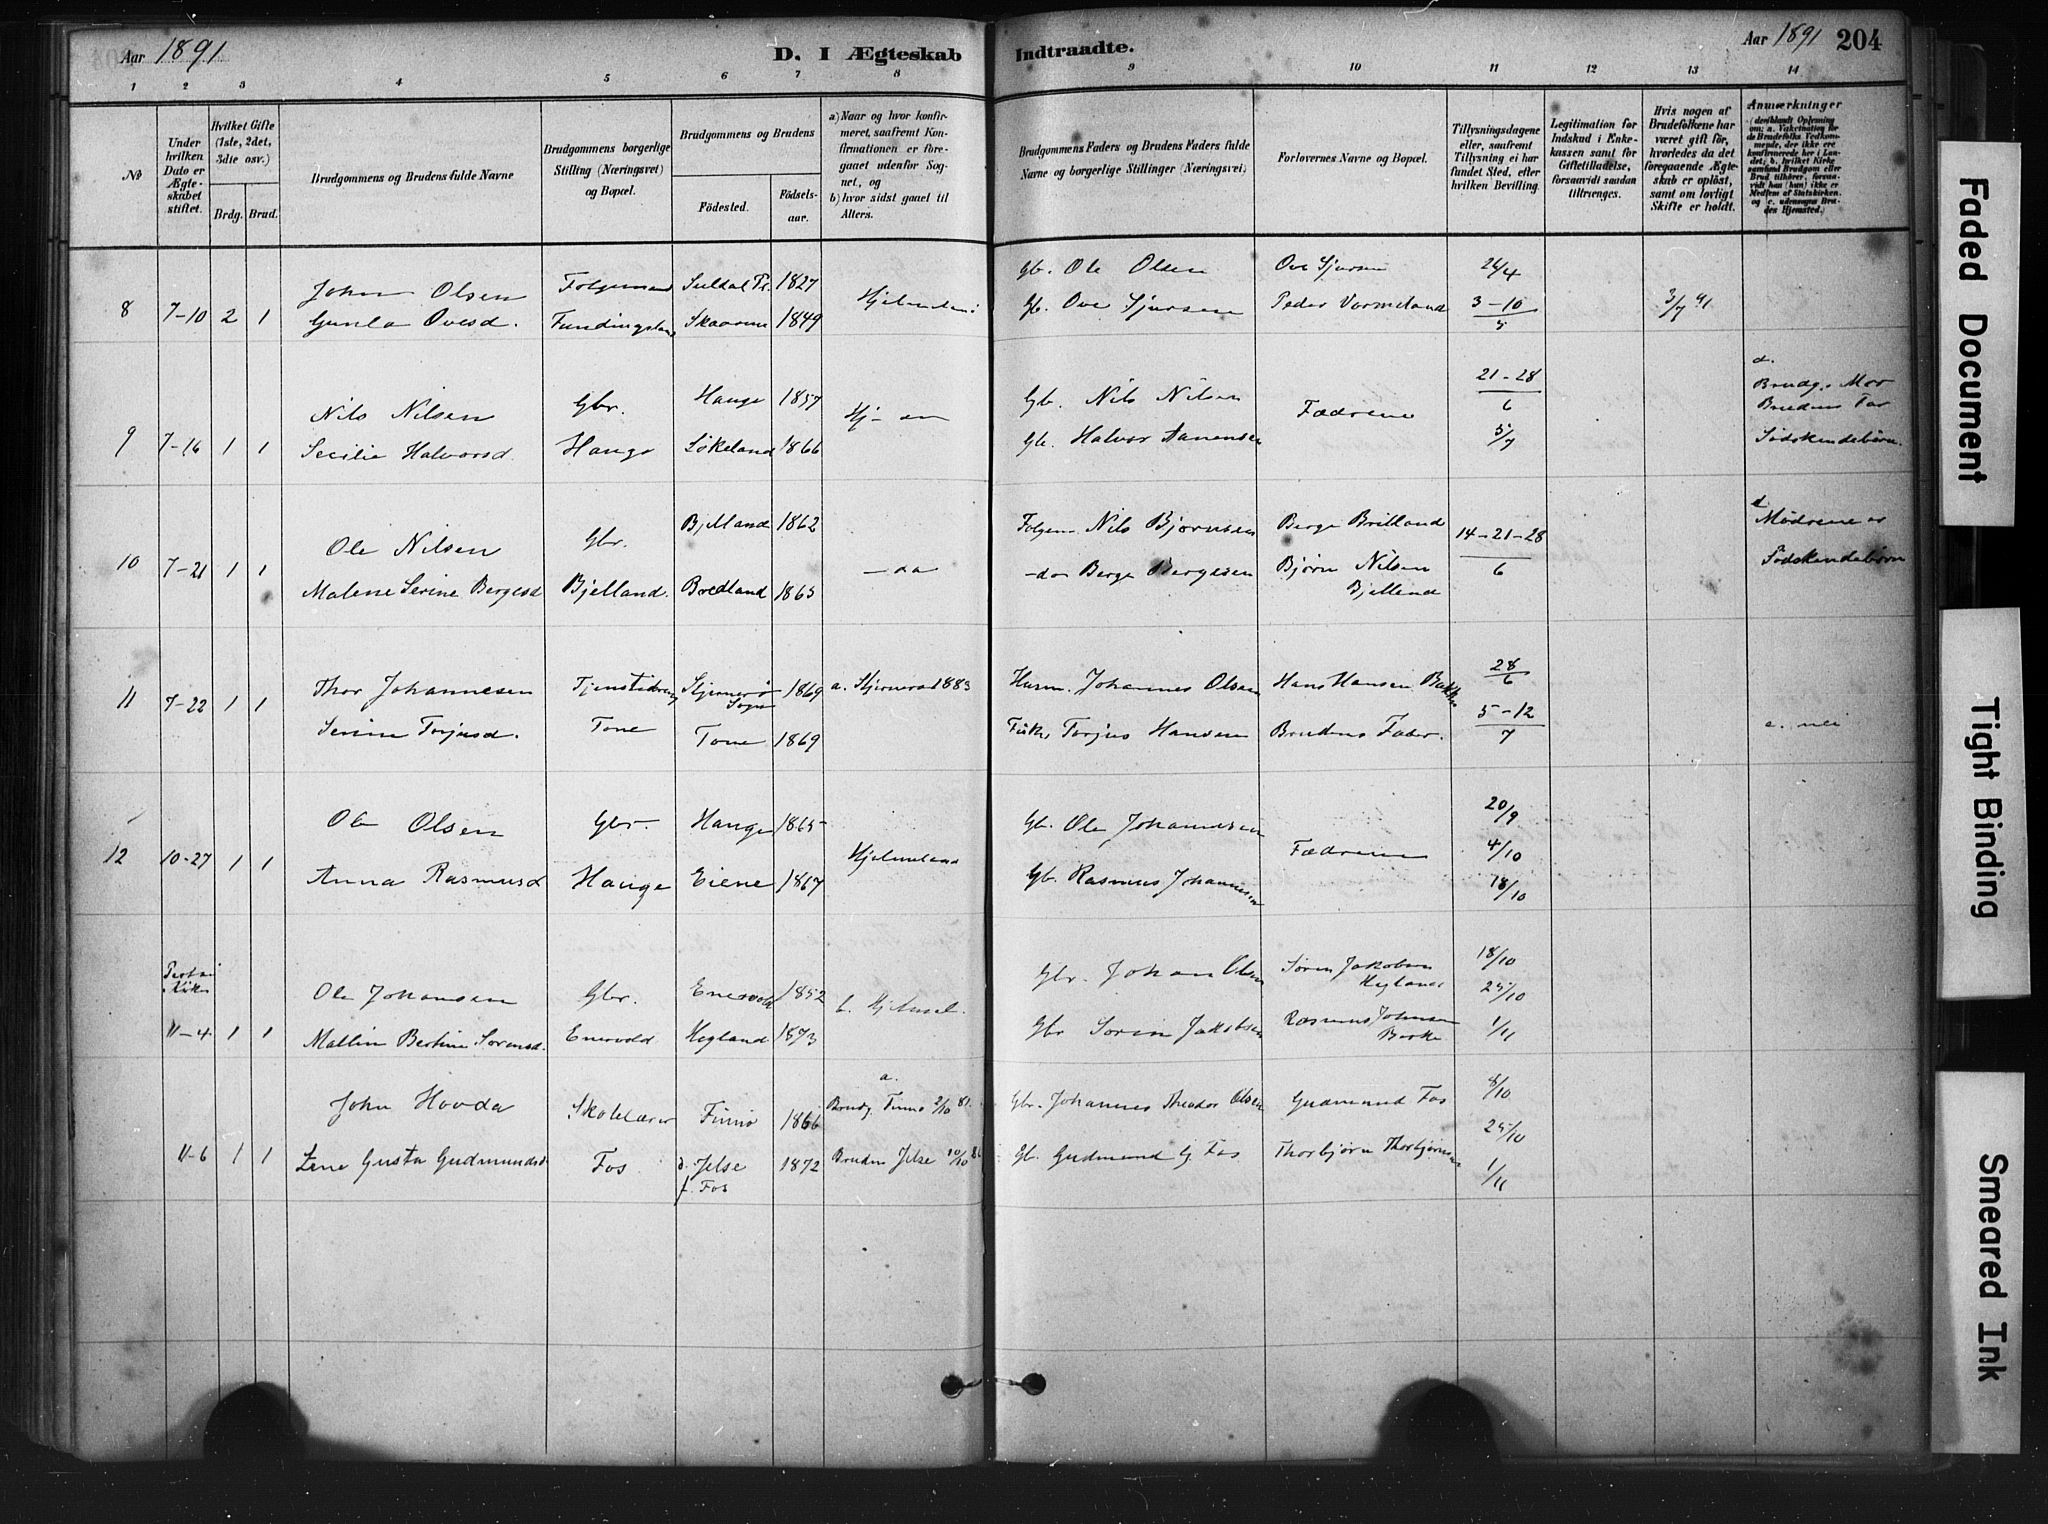 Aar 1891
D. I Ægteskab Indtraadte.
Aar 1891 204
1 2 3 4 5 6 7 8 9 10 11 12 13 14
No
Under hvilken Dato er Ægteskabet stiftet.
Hvilket Gifte (1ste, 2det, 3die osv.)
Brdg. Brud.
Brudgommens og Brudens fulde Navne
Brudgommens borgerlige Stilling (Næringsvei) og Bopæl.
Brudgommens og Brudens
Födested.
Födselsaar.
a) Naar og hvor konfirmeret, saafremt Konfirmationen er foregaaet udenfor Sognet, og
b) hvor sidst gaaet til Alters.
Brudgommens Faders og Brudens Faders fulde Navne og borgerlige Stillinger (Næringsvei)
Forlovernes Navne og Bopæl.
Tillysningsdagene eller, saafremt Tillysning ei har fundet Sted, efter hvilken Bevilling.
Legitimation for Indskud i Enkekassen samt for Giftetilladelse, forsaavidt saadan tiltrænges.
Hvis nogen af Brudefolkene har været gift för, hvorledes da det foregaaende Ægteskab er oplöst, samt om lovligt Skifte er holdt.
Anmærkninger (deriblandt Oplysning om: a. Vakcination for de Brudefolks Vedkommende, der ikke ere konfirmerede her i Landet; b. hvilket Kirkesamfund Brudgom eller Brud tilhörer, forsaavidt han (hun) ikke er Medlem af Statskirken, og c. udensogns Brudes Hjemsted.)
John Olsen Folgemand Suldal Pr. 1827 Gb. Ole Olsen Ove Sjursen 24/4
8 7-10 2 1 Gunla Ovesd. Fundingsland 1849 Gb. Ove Sjursen Peder Vormeland 3-10/5 3/7 91
Nils Nilsen Gbr. Hauge 1857 Gb. Nils Nilsen Fædrene 21-28/6 d. Brudg. Mor Brudens Far
9 7-16 1 1 Secilie Halvorsd. Hauge Løkeland 1866 Gb. Halvor Aanensen 5/7 Södskendebörn.
Ole Nilsen Gbr. Bjelland 1862 Nils Bjørnsen Berge Bretland 14-21-28/6 d Mödrene er
10 7-21 1 1 Malene Serine Bergesd Bjelland. Bredland 1865 - do - do Berge Bergesen Bjørn Nilsen Bjelland Södskendebörn
Thor Johannesen Tjenstedreng Stjernerö Sogn 1869 a. Stjernerö 1883 Husm. Johannes Olsen Hans Hansen Bakke 28/6
11 7-22 1 1 Serine Torjusd. Tone Tone 1869 Torjus Hansen Brudens Fader. 5-12/7 nei
Ole Olsen Gbr. Hauge 1865 Hjelmeland Gb. Ole Johannesen Fædrene 20/9
12 10-27 1 1 Anna Rasmusd Hauge Eiene 1867 Gb. Rasmus Johannesen 4/10 18/10
Ole Johansen Gbr. Enesvold 1852 b. Hjelmel. Gbr. Johan Olsen Søren Jakobsen Hegland 18/10 25/10
11-4 1 1 Mallin Bertine Sorensd. Enesvold Hegland 1873 Gbr Soren Jakobsen Rasmus Johnsen 1/11
John Hovda Skolelærer Finnö 1866 a. Brudg. Finnö 2/10 81. Gbr. Johannes Theodor Olsen Gudmund Fos 8/10 25/10
11-6 1 1 Lene Gusta Gudmundsd Fos d. Jelse f. Fos 1872 Bruden Jelse 10/10 86 Gb. Gudmund Fos Thorbjørn Thorbjørnsen 1/11
Faded Document
Tight Binding
Smeared Ink